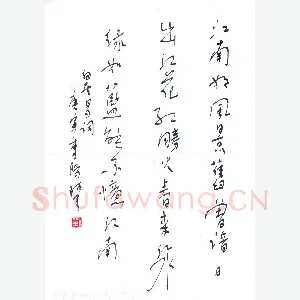 江南好風景舊曾諳日
出江花红勝火春来江水
緑如藍能不憶江南
白居易词
庚寅
Shufawang.CN